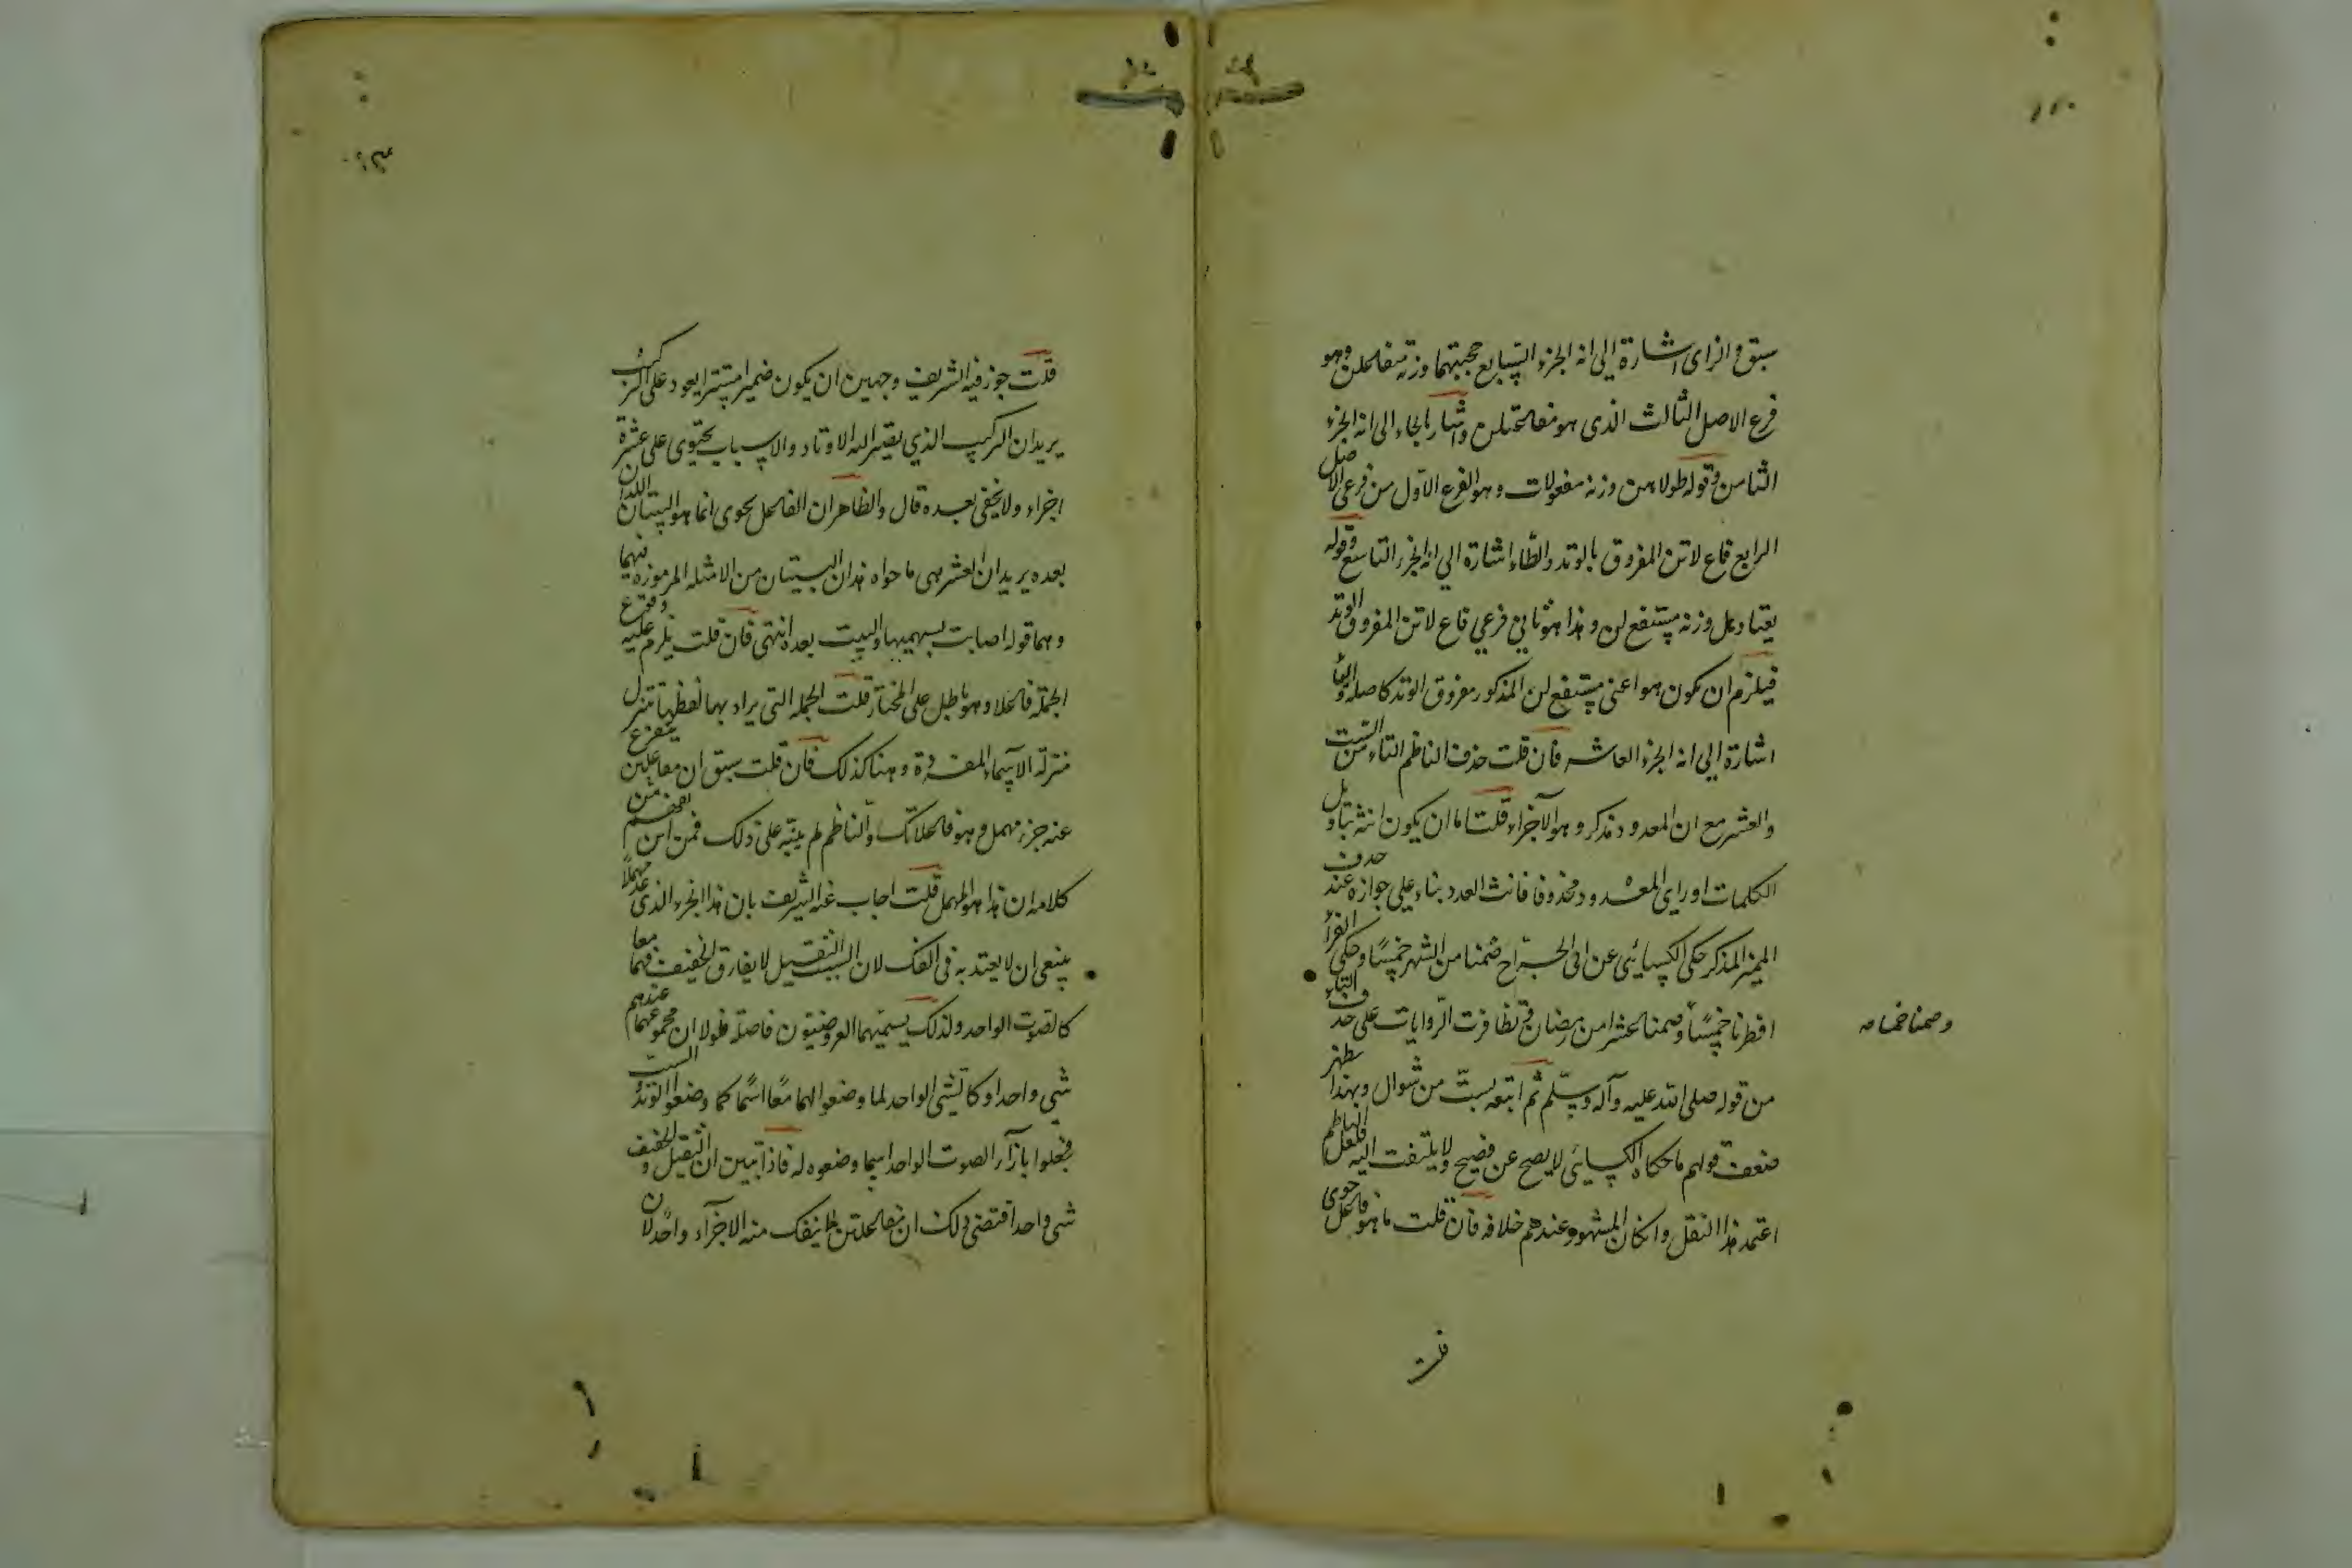 سبق والزاى اشارة الى انه الجزء السابع حجبتهما وزنه مفاعلن وهو
فرع الاصل الثالث الذى هو مفاعلتن واشار بالحاء الى انه الجزء
الثامن وقوله طولاهن وزنه مفعولات وهو الفرع الاول من فرعى الاصل
الرابع فاع لاتن المفروق بالوتد والطاء اشارة الى انه الجزء التاسع وقوله
يعتادكل وزنه مستفع لن وهذا هو ثانى فرعي فاع لاتن المفروق الوتد
فيلزم ان يكون هو اعنى مستفع لن المذكور مفروق الوتد كاصله واليا
اشارة الى انه الجزء العاشر فان قلت حذف الناظم التاء من الست
والعشر مع ان المعدود مذكر وهو الاجزاء قلت اما ان يكون انثه بتاويل
الكلمات او راى المعدود محذوفا فانث العدد بناء على جوازه عند حذف
المميز المذكر حكى الكسائى عن ابى الجراح صمنا من الشهر خمسا وحكى الفراء
افطرنا خمسا وصمنا عشرا من رمضان وتظافرت الروايات على حذف التاء
من قوله صلى الله عليه وآله وسلم ثم اتبعه بست من شوال وبهذا يظهر
ضعف قولهم ما حكاه الكسائى لا يصح عن فصيح ولا يلتفت اليه فلعل الناظم
اعتمد هذا النقل وان كان المشهور عندهم خلافه فان قلت ما هو فاعل حوى
وصمنا خمسا صه
قلت
قلت جوز فيه الشريف وجهين ان يكون ضميرا مستترا يعود على التركيب
يريد ان التركيب الذي يصير اليه الاوتاد والاسباب يحتوى على عشرة
اجزاء ولا يخفى بعده قال والظاهر ان الفاعل يحوى انما هو البيتان اللذان
بعده يريد ان العشر هى ما حواه هذان البيتان من الامثلة المرموزة فيهما
وهما قوله اصابت بسهميها والبيت بعده انتهى فان قلت يلزم عليه وقوع
الجملة فاعلا وهو باطل على المختار قلت الجملة التى يراد بها لفظها تتنزل
منزلة الاسماء المفردة وهنا كذلك فان قلت سبق ان مفاعلتن يتفرع
عنه جزء مهمل وهو فاعلاتك والناظم لم ينبه على ذلك فمن اين يفهم من
كلامه ان هذا هو المهمل قلت اجاب عنه الشريف بان هذا الجزء الذى عد مهملا
ينبغى ان لا يعتد به فى الفك لان السبب الثقيل لا يفارق الخفيف فهما معا
كالصوت الواحد ولذلك يسميهما العروضيون فاصلة فلولا ان مجموعهما عندهم
شى واحد او كالشى الواحد لما وضعوا لهما معا اسما كما وضعوا الوتد السبب
فجعلوا بازاء الصوت الواحد اسما وضعوه له فاذا تبين ان الثقيل والخفيف
شى واحد اقتضى ذلك ان مفاعلتن انما ينفك منه الاجزاء واحد لان